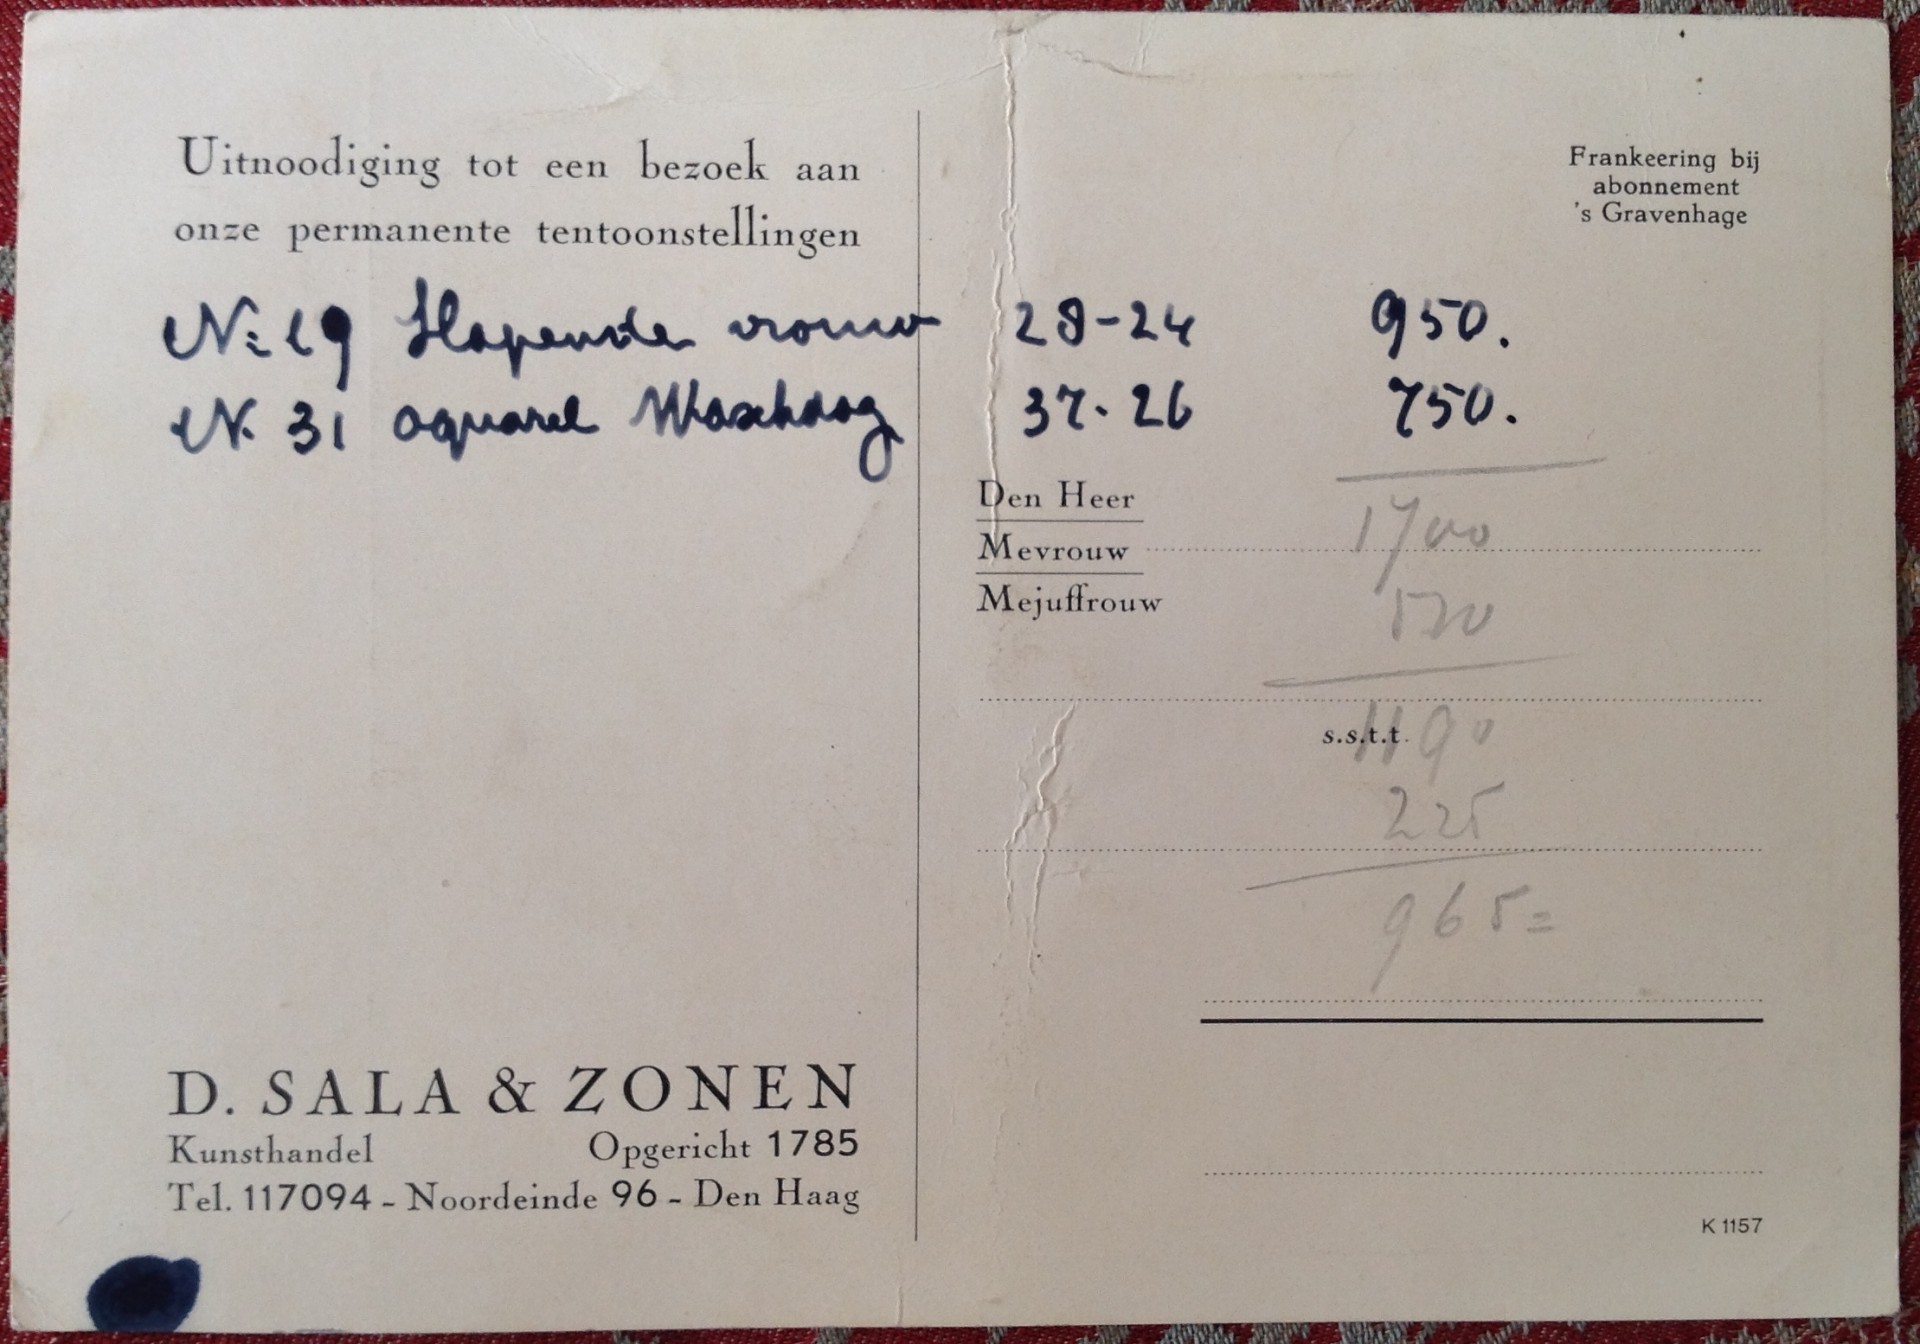 Uitnoodiging tot een bezoek aan
onze permanente tentoonstellingen
Frankeering bij
abonnement
's Gravenhage
N: 19 Slapende vrouw 28-24 950.
N. 31 aquarel Waschdag 37-26 750.
1700
Den Heer
Mevrouw
Mejuffrouw
510
s.s.t.t.
1190
225
965=
D. SALA & ZONEN
Kunsthandel Opgericht 1785
Tel. 117094 - Noordeinde 96 - Den Haag
K 1157